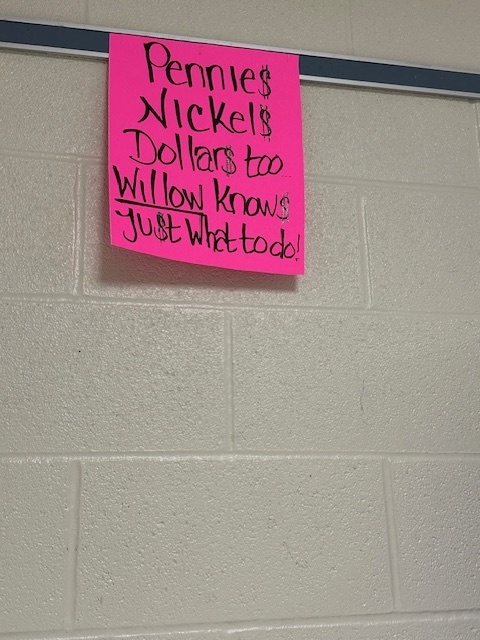 Pennie$
Nickel$
Dollar$ too
Willow know$
ju$t what to do!